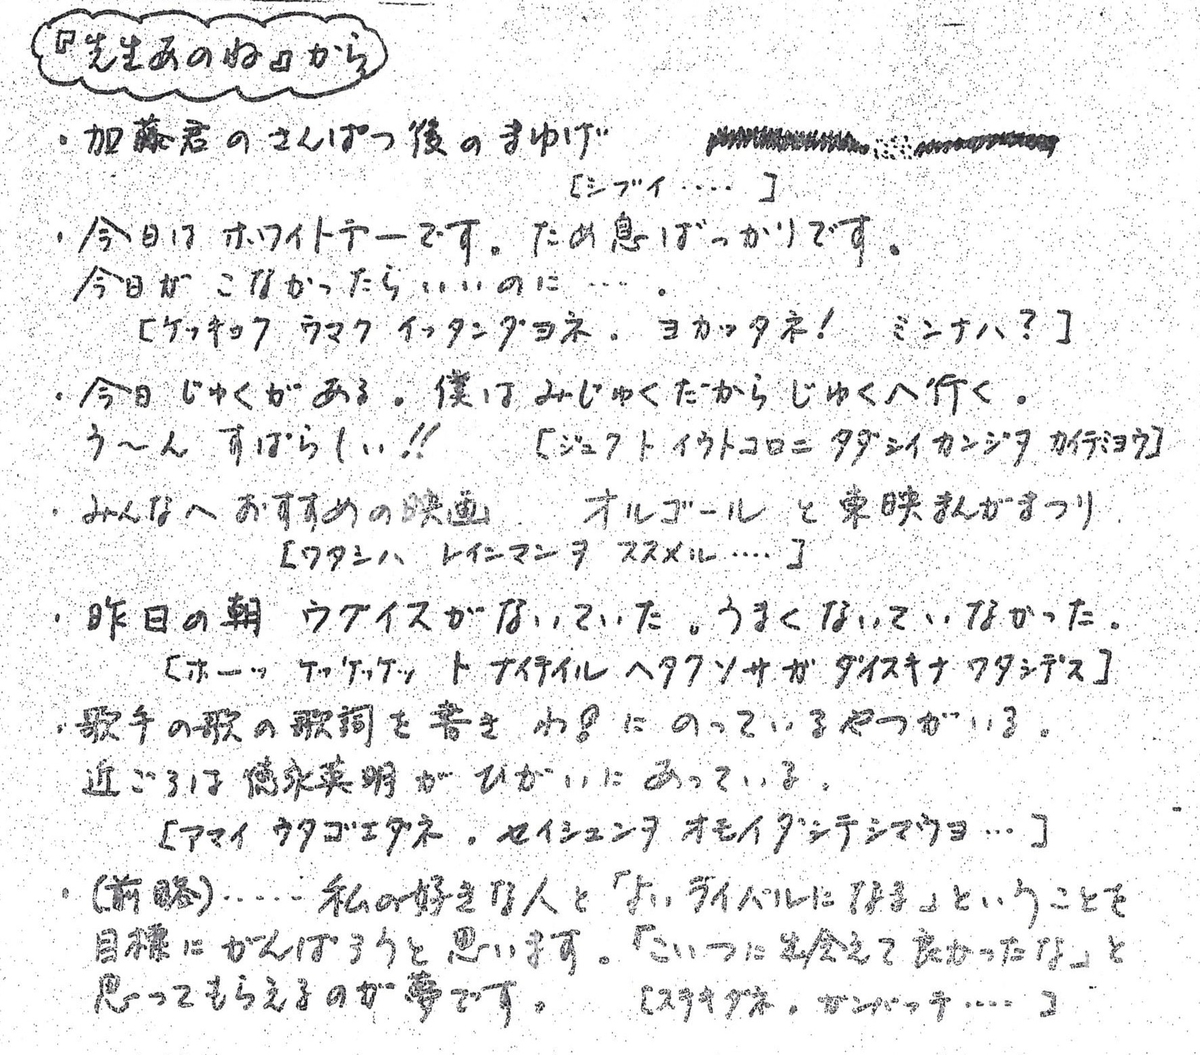 『先生あのね』から
・加藤君のさんぱつ後のまゆげ
[シブイ‥‥]
・今日はホワイトデーです。ため息ばっかりです。
今日がこなかったらいいのに‥‥。
[ケッキョク ウマク イッタンダヨネ。ヨカッタネ! ミンナハ?]
・今日じゅくがある。僕はみじゅくだからじゅくへ行く。
う〜ん すばらしい!! [ジュクト イウトコロニ タダシイ カンジヲ カイテミヨウ]
・みんなへおすすめの映画 オルゴールと東映まんがまつり
[ワタシハ レインマンヲ ススメル‥‥]
・昨日の朝 ウグイスがないていた。うまくないていなかった。
[ホーッ ケッケッケッ ト ナイテイル ヘタクソサガ ダイスキナ ワタシデス]
・歌手の歌の歌詞を書き にのっているやつがいる。
近ごろは徳永英明がひがいにあっている。
[アマイ ウタゴエダネ。セイシュンヲ オモイダシテシマウヨ…]
・(前略)‥‥‥私の好きな人と「よいライバルになる」ということを
目標にがんばろうと思います。「こいつに出会えて良かったな」と
思ってもらえるのが夢です。 [ステキダネ。ガンバッテ‥‥]